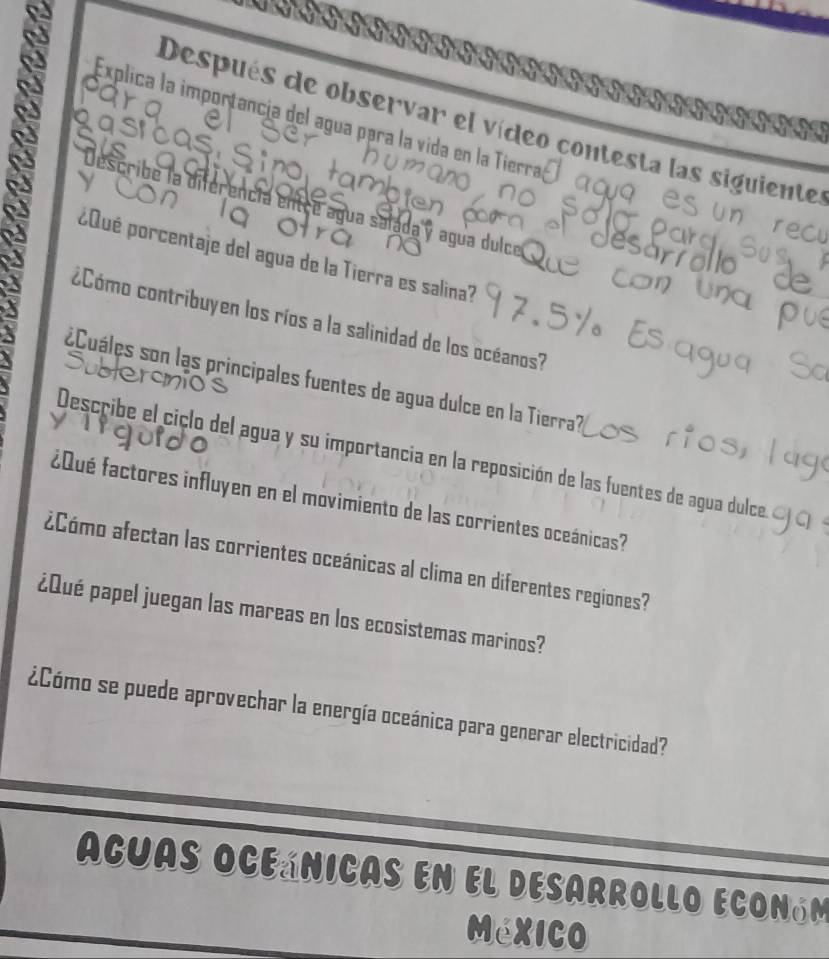 Después de observar el vídeo contesta las siguientes
Explica la importancia del agua para la vida en la Tierra. El agua es un recu
para el ser humano, no solo para sus
basicas, sino tambien para el desarrollo de
sus actividades
Describe la diferencia entre agua salada y agua dulce Que con una pue
y con la otra no
¿Qué porcentaje del agua de la Tierra es salina? 97.5% Es agua Sa
¿Cómo contribuyen los ríos a la salinidad de los océanos?
¿Cuáles son las principales fuentes de agua dulce en la Tierra? Los rios, lag
Subteranios
Describe el ciclo del agua y su importancia en la reposición de las fuentes de agua dulce. ga
y liquido
¿Qué factores influyen en el movimiento de las corrientes oceánicas?
¿Cómo afectan las corrientes oceánicas al clima en diferentes regiones?
¿Qué papel juegan las mareas en los ecosistemas marinos?
¿Cómo se puede aprovechar la energía oceánica para generar electricidad?
AGUAS OCEÁNICAS EN EL DESARROLLO ECONÓM
MÉXICO